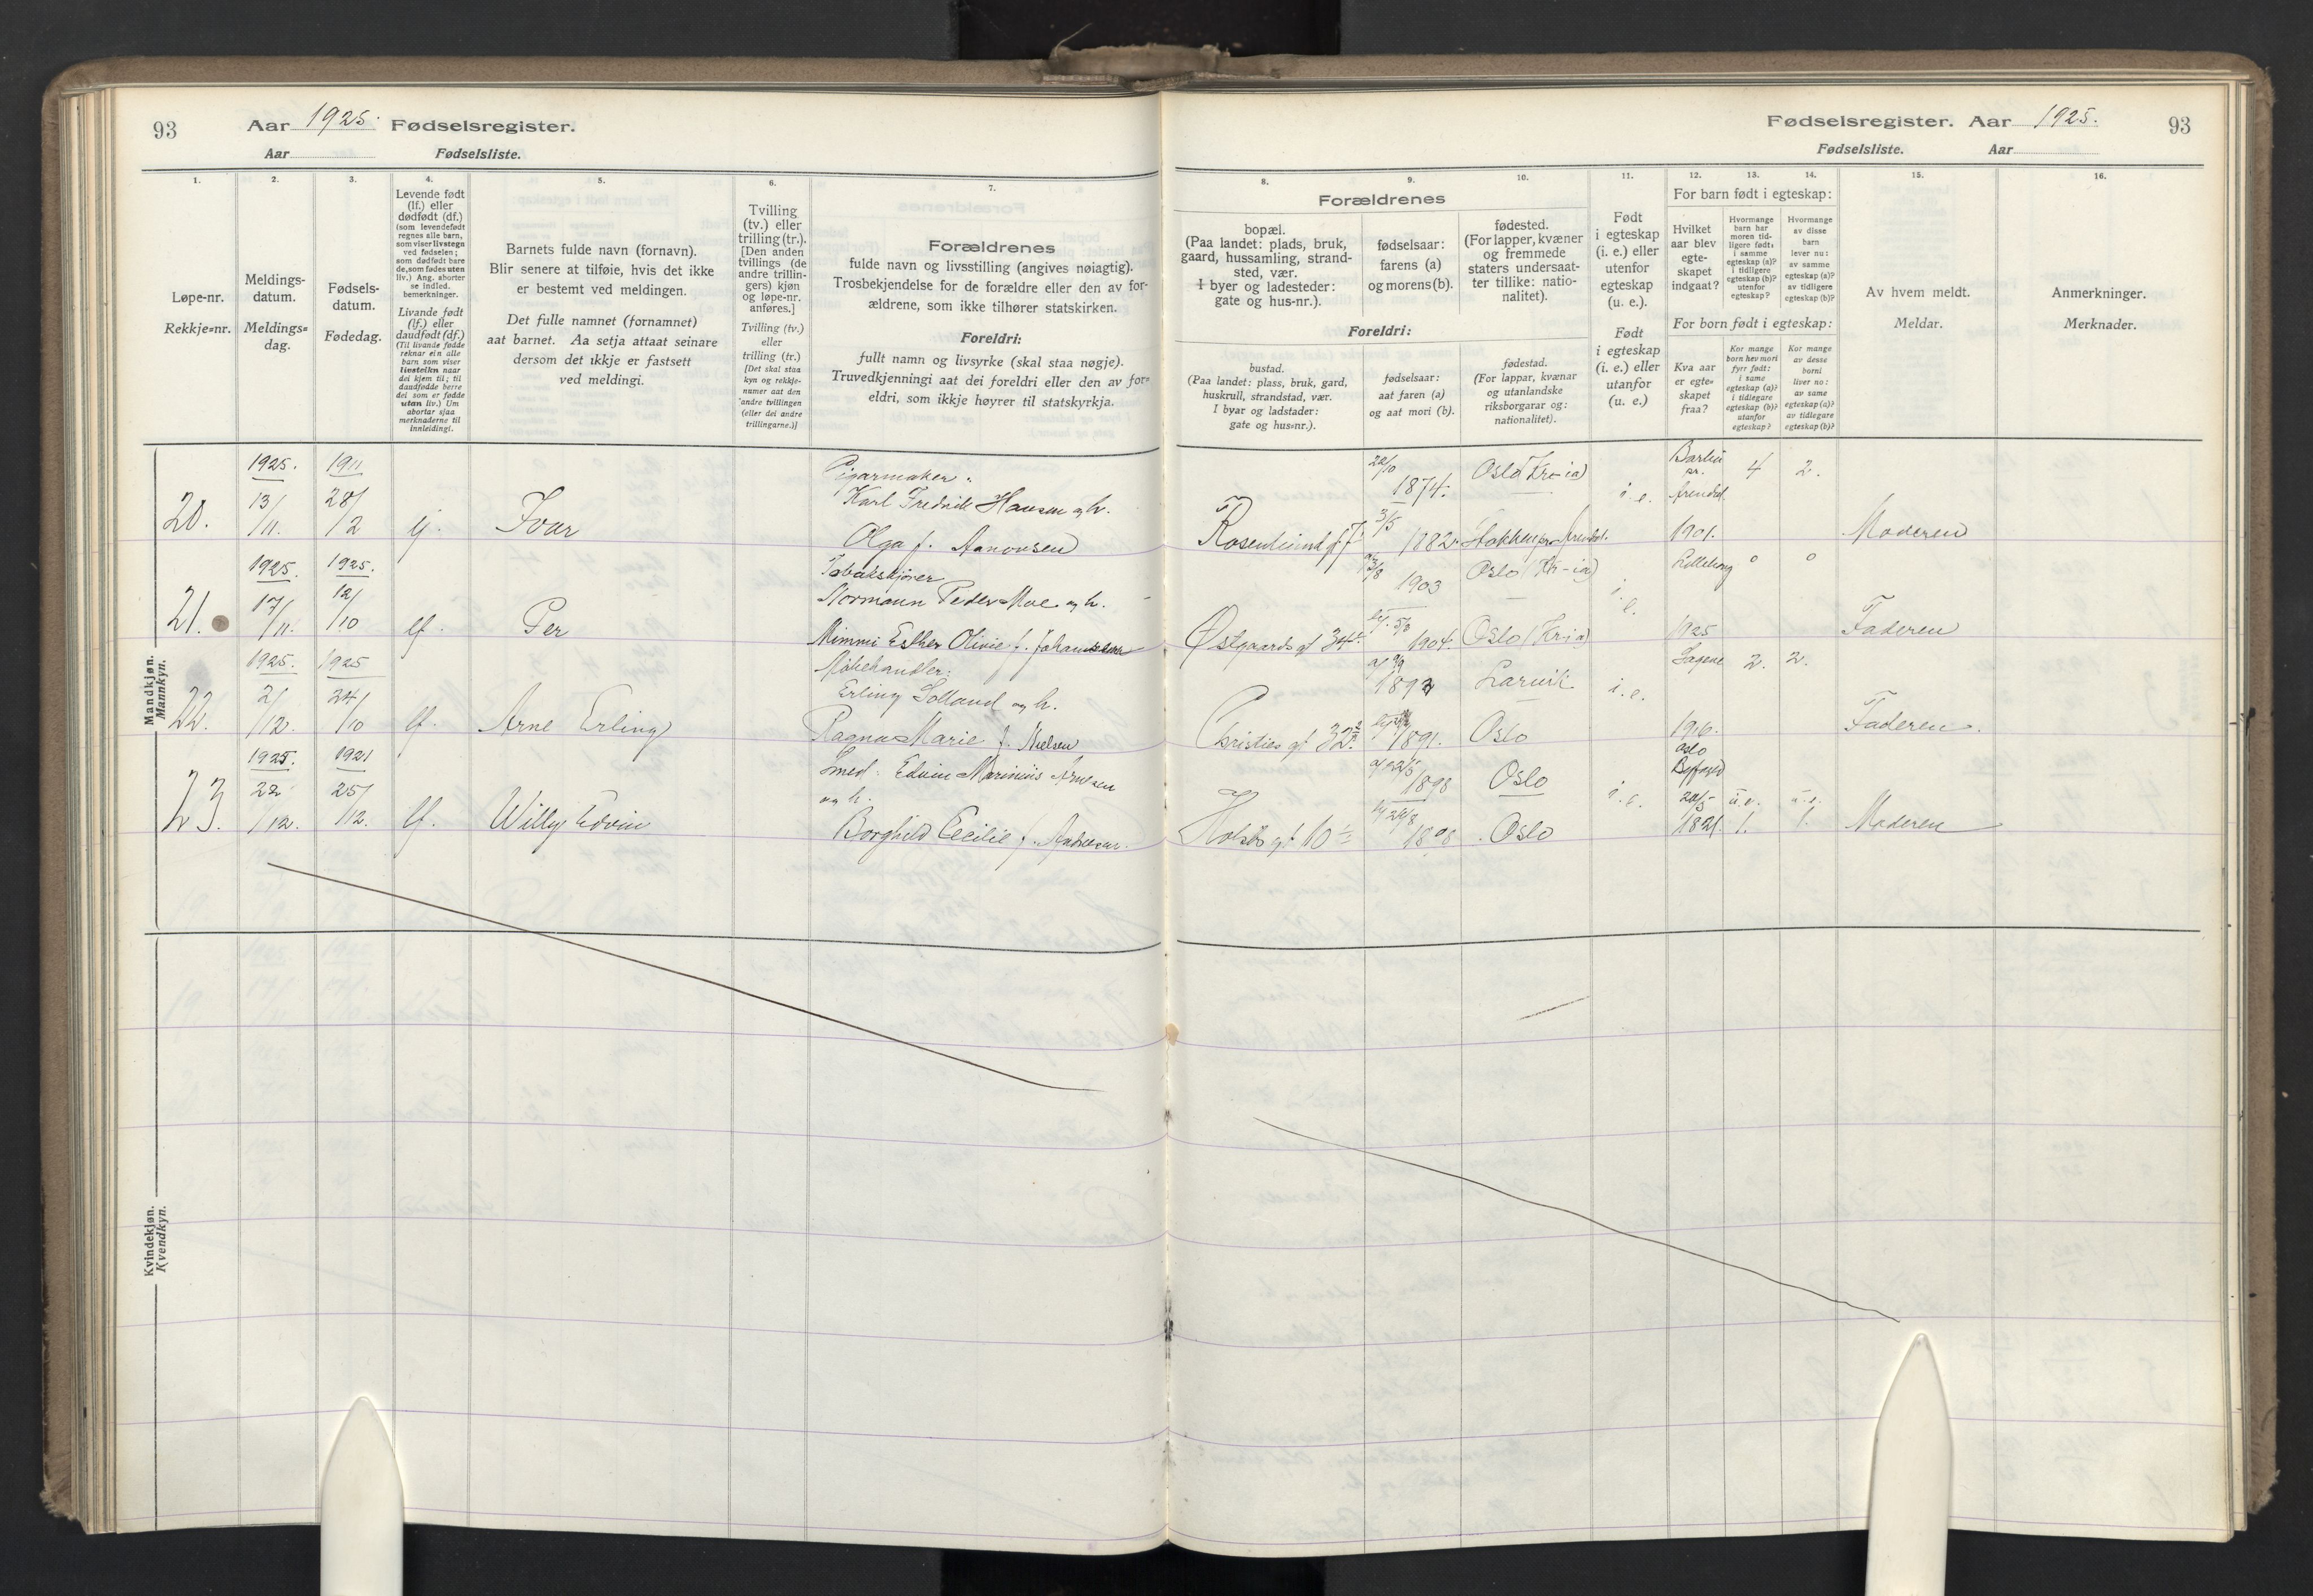 93 Aar 1925. Fødselsregister.
Aar Fødselsliste.
1. 2. 3. 4. 5. 6. 7.
Løpe-nr.
Rekkje=nr.
Meldings-
datum.
Meldings=
dag.
Fødsels-
datum.
Fødedag.
Levende født
(lf.) eller
dødfødt (df.)
(som levendefødt
regnes alle barn,
som viser livstegn
ved fødselen;
som dødfødt bare
de, som fødes uten
liv.) Ang. aborter
se indled.
bemerkninger.
Livande født
(lf.) eller
daudfødt (df.)
(Til livande fødde
reknar ein alle
barn som viser
livsteikn naar
dei kjem til; til
daudfødde berre
dei som er fødde
utan liv.) Um
abortar sjaa
merknaderne til
innleidingi.
Barnets fulde navn (fornavn).
Blir senere at tilføie, hvis det ikke
er bestemt ved meldingen.
Det fulle namnet (fornamnet)
aat barnet. Aa setja attaat seinare
dersom det ikkje er fastsett
ved meldingi.
Tvilling
(tv.) eller
trilling (tr.).
[Den anden
tvillings (de
andre trillin-
gers) kjøn
og løpe-nr.
anføres.]
Tvilling (tv.)
eller
trilling (tr.)
[Det skal staa
kyn og rekkje-
numer aat den
andre tvillingen
(eller dei andre
trillingarne.)]
Forældrenes
fulde navn og livsstilling (angives nøiagtig).
Trosbekjendelse for de forældre eller den av for-
ældrene, som ikke tilhører statskirken.
Foreldri:
fullt namn og livsyrke (skal staa nøgje).
Truvedkjenningi aat dei foreldri eller den av for=
eldri, som ikkje høyrer til statskyrkja.
Mandkjøn.
Mannkyn.
20.
1925.
13/
11.
1911
28/
2
Ivar
Cigarmaker.
Karl Fredrik Hansen og h.
Olga f. Aanonsen
21.
1925.
17/
11.
1925.
12/
10
lf.
Per
Normann Peder Moe og h.
Mimmi Esther Olivie f. Johannessen
22.
1925.
2/
12.
1925
24/
10
lf.
Arne Erling
Møbelhandler.
Erling Solland og h.
Ragna Marie f. Nielsen
23.
1925.
22
/12.
1921
25/
12.
lf.
Willy Edvin
Smed. Edvin Marinius Arnesen
og h.
Borghild Cecilie f. Andresen.
Kvindekjøn.
Kvendkyn.
Fødselsregister. Aar 1925. 93
Fødselsliste. Aar
8. 9. 10. 11. 12. 13. 14. 15. 16.
Forældrenes
bopæl.
(Paa landet: plads, bruk,
gaard, hussamling, strand-
sted, vær.
I byer og ladesteder:
gate og hus-nr.).
fødselsaar:
farens (a)
og morens (b).
fødested.
(For lapper, kvæner
og fremmede
staters undersaat-
ter tillike: natio-
nalitet).
Foreldri:
bustad.
(Paa landet: plass, bruk, gard,
huskrull, strandstad, vær.
I byar og ladstader:
gate og hus=nr.).
fødselsaar:
aat faren (a)
og aat mori (b).
fødestad.
(For lappar, kvænar
og utanlandske
riksborgarar og:
nationalitet).
Født
i egteskap
(i. e.) eller
utenfor
egteskap
(u. e.).
Født
i egteskap
(i. e.) eller
utanfor
(u. e.)
For barn født i egteskap:
Hvilket
aar blev
egte-
skapet
indgaat?
Hvormange
barn har
moren tid-
ligere født:
i samme
egteskap (a)?
i tidligere
egteskap (b)?
utenfor
egteskap?
Hvormange
av disse
barn
lever nu:
av samme
egteskap (a)?
av tidligere
egteskap (b)?
For born født i egteskap:
Kva aar
er egte=
skapet
fraa?
Kor mange
born hev mori
fyrr født:
i same
egteskap (a)?
i tidlegare
egteskap (b)?
utanfor
egteskap?
Kor mange
av desse
borni
liver no:
av same
egteskap (a)?
av tidlegare
egteskap (b)?
Av hvem meldt.
Meldar.
Anmerkninger.
Merknader.
20/10
1874.
3/5
1882.
Oslo (Kr-ia)
i. e.
Barbu
pr.
Arendal
1901.
4
2.
Moderen
1903
Oslo (Kr-ia)
Østgaards gt 34
1904.
Oslo (Kr-ia)
i. e.
1925
0
0
Faderen
Larvik
Christies gt 32
1891.
Oslo
i. e.
Sagene
1916
2.
2.
Faderen.
1898
Oslo
Holsts gt 10
1898
Oslo
i. e.
Oslo
Byfoged
u. e.
1.
u. e.
1.
Moderen